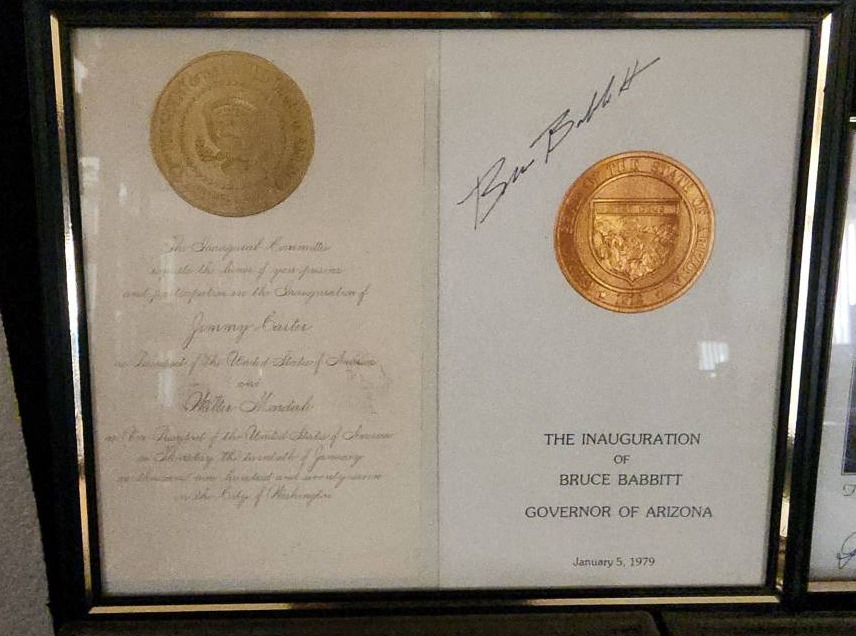 The Inaugural Committee
requests the honor of your presence
and participation in the Inauguration of
Jimmy Carter
as President of the United States of America
and
Walter Mondale
as Vice President of the United States of America
on Thursday the twentieth of January
one thousand nine hundred and seventy-seven
in the City of Washington
Bruce Babbitt
SEAL OF THE STATE OF ARIZONA
1912
THE INAUGURATION
OF
BRUCE BABBITT
GOVERNOR OF ARIZONA
January 5, 1979